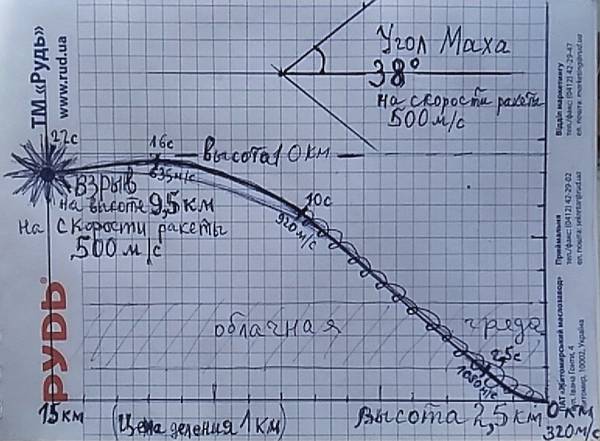 ТМ «Рудь»
www.rud.ua
Угол Маха
38°
на скорости ракеты
500 м/с
22с
16с
высота 10 км
635 м/с
взрыв
на высоте 9,5 км
на скорости ракеты
500 м/с
10с
920 м/с
РУДЬ®
облачная гряда
2,5с
1080 м/с
15 км
(Цена деления 1 км)
Высота 2,5 км
0 км
320 м/с
Відділ маркетингу
тел./факс: (0412) 42-29-47
ел. пошта: marketing@rud.ua
Приймальня
тел./факс: (0412) 42-29-02
ел. пошта: sekretar@rud.ua
ПАТ «Житомирський маслозавод»
вул. Івана Гонти, 4
Житомир, 10002, Україна